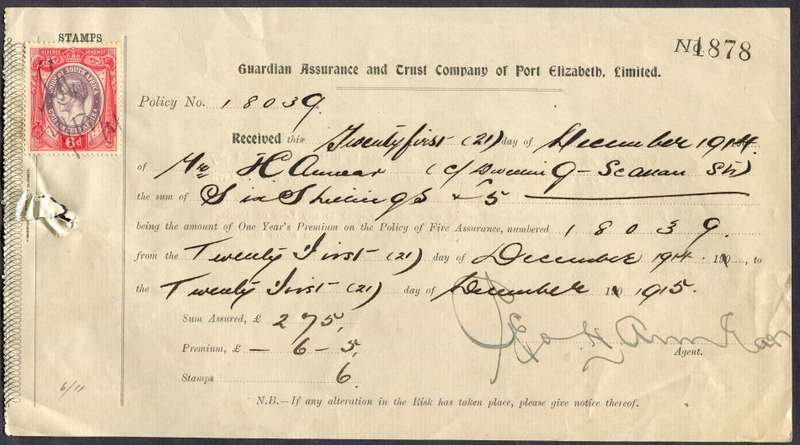 STAMPS
No. 1878
Guardian Assurance and Trust Company of Port Elizabeth, Limited.
Policy No. 18039
Received this Twenty first (21) day of December 1914
of H Annear (c/
the sum of Six Shillings & 5
being the amount of One Year's Premium on the Policy of Fire Assurance, numbered 18039
from the Twenty First (21) day of December 1914 190 , to
the Twenty First (21) day of December 190 1915.
Sum Assured, £ 275,
Premium, £ – 6 – 5,
Agent.
Stamps 6.
6/11
N.B.—If any alteration in the Risk has taken place, please give notice thereof.
REVENUE INKOMST
UNION OF SOUTH AFRICA
6d